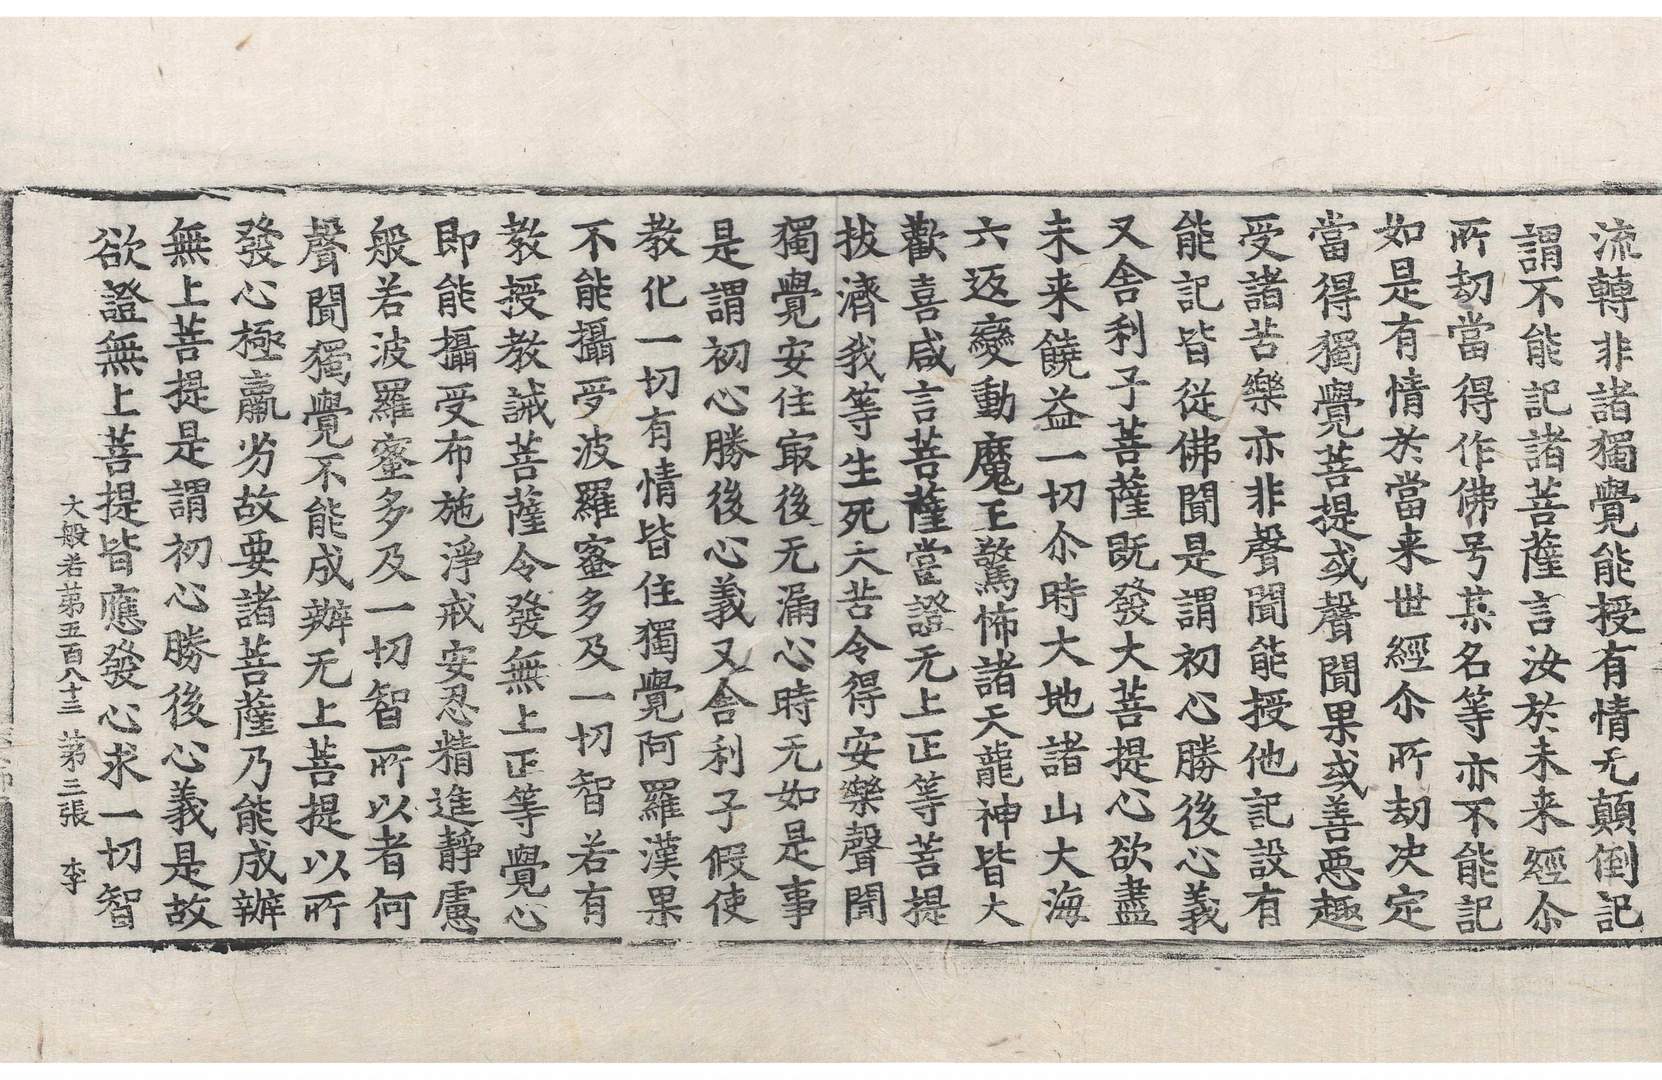 流轉非諸獨覺能授有情无顛倒記
謂不能記諸菩薩言汝於未来經尒
所劫當得作佛号某名等亦不能記
如是有情於當来世經尒所劫决定
當得獨覺菩提或聲聞果或善惡趣
受諸苦樂亦非聲聞能授他記設有
能記皆從佛聞是謂初心勝後心義
又舍利子菩薩既發大菩提心欲盡
未来饒益一切尒時大地諸山大海
六返變動魔王驚怖諸天龍神皆大
歡喜咸言菩薩當證无上正等菩提
拔濟我等生死大苦令得安樂聲聞
獨覺安住㝡後无漏心時无如是事
是謂初心勝後心義又舍利子假使
教化一切有情皆住獨覺阿羅漢果
不能攝受波羅蜜多及一切智若有
教授教誡菩薩令發無上正等覺心
即能攝受布施淨戒安忍精進靜慮
般若波羅蜜多及一切智所以者何
聲聞獨覺不能成辦无上菩提以所
發心極羸劣故要諸菩薩乃能成辦
無上菩提是謂初心勝後心義是故
欲證無上菩提皆應發心求一切智
大般若第五百八十三 第三張 李